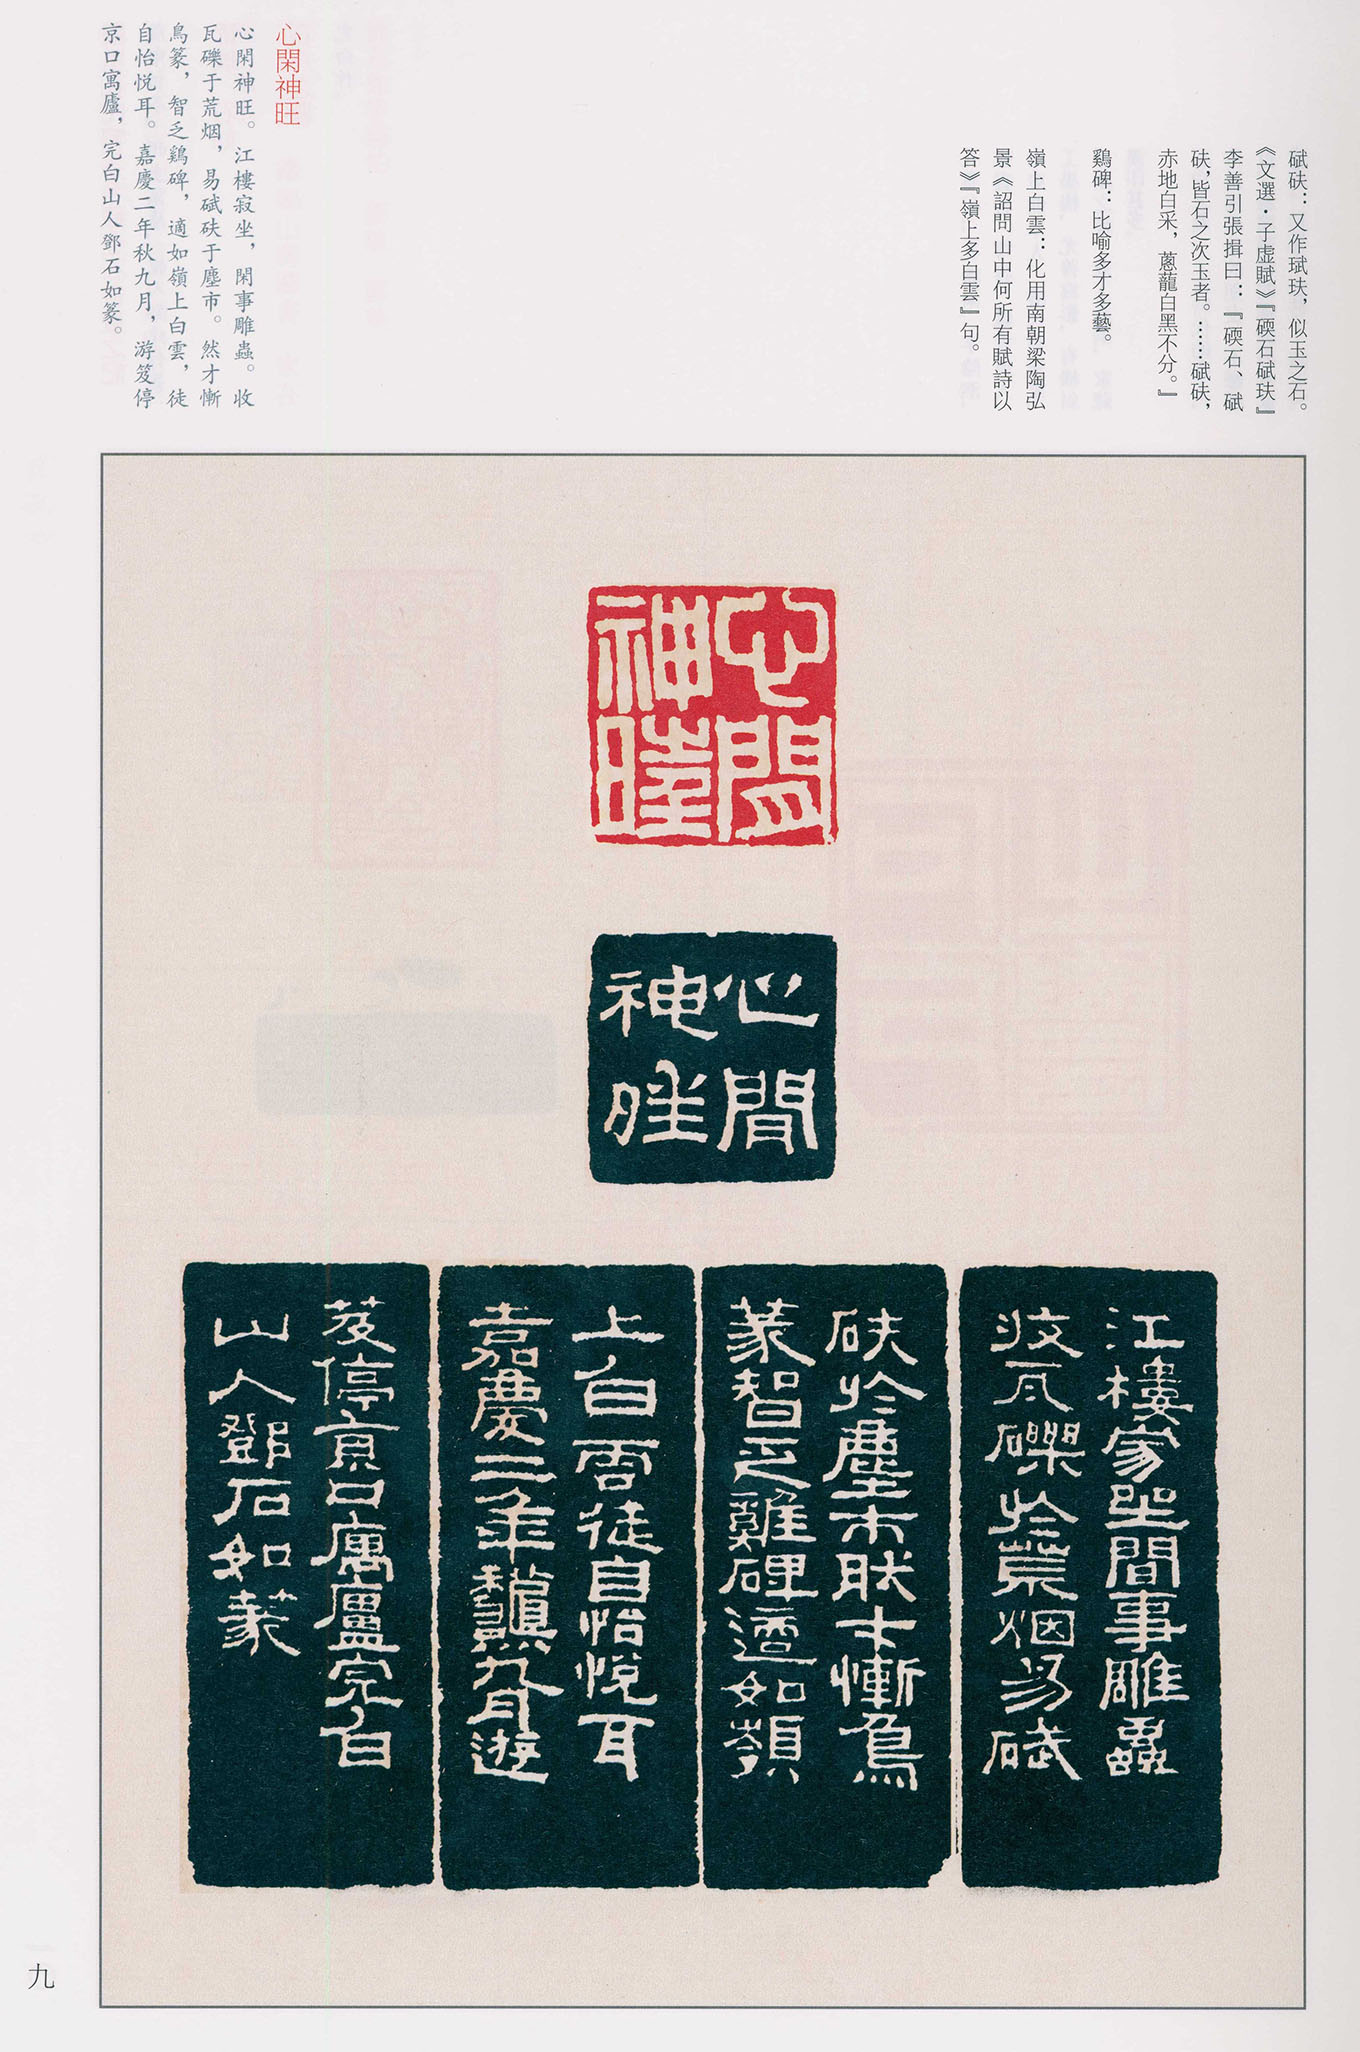 碔砆：又作珷玞，似玉之石。
《文選·子虛賦》『碝石碔玞』
李善引張揖曰：『碝石、碔
砆，皆石之次玉者。……碔砆，
赤地白采，蔥蘢白黑不分。』
鷄碑：比喻多才多藝。
嶺上白雲：化用南朝梁陶弘
景《詔問山中何所有賦詩以
答》『嶺上多白雲』句。
心閑神旺
心閑神旺。江樓寂坐，閑事雕蟲。收
瓦礫于荒烟，易碔砆于塵市。然才慚
鳥篆，智乏鷄碑，適如嶺上白雲，徒
自怡悅耳。嘉慶二年秋九月，游笈停
京口寓廬，完白山人鄧石如篆。
心閒
神旺
心閒
神旺
江樓寂坐閒事雕蟲
收瓦礫於荒烟易碔
砆於塵市然才慚鳥
篆智乏雞碑適如嶺
上白雲徒自怡悅耳
嘉慶二年龝九月遊
笈停京口寓廬完白
山人鄧石如篆
九